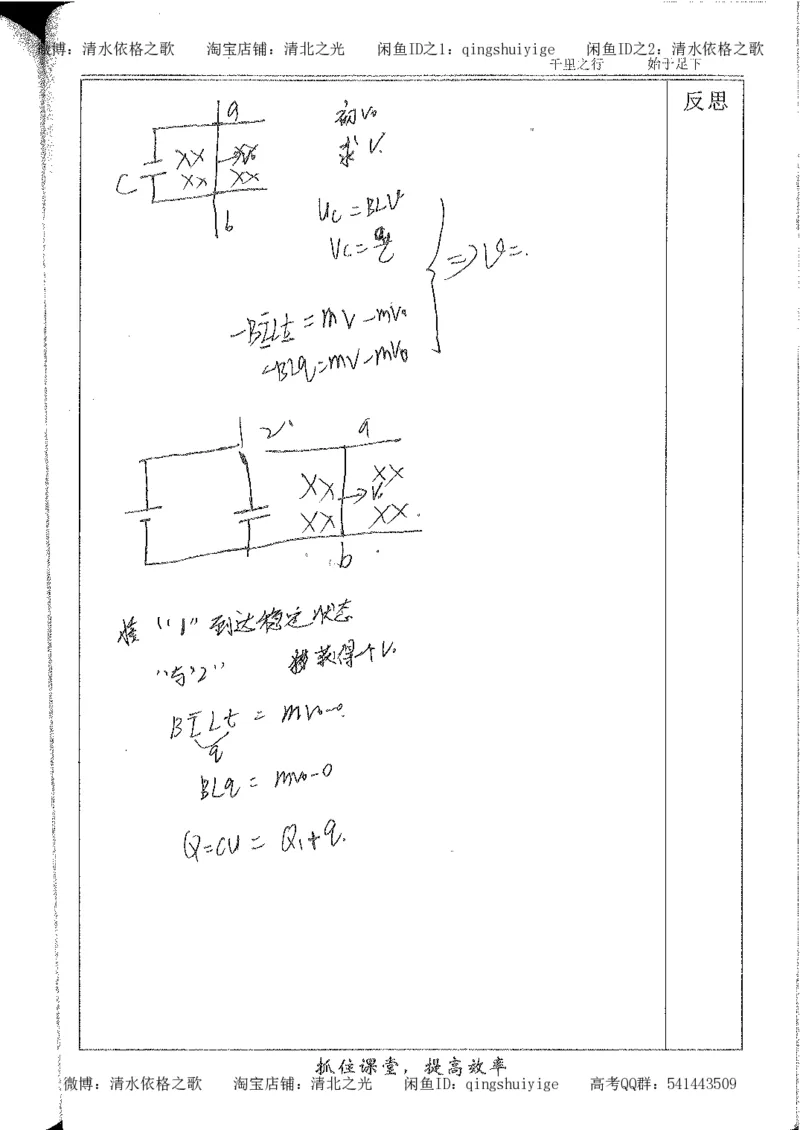 微博：清水依格之歌 淘宝店铺：清北之光 闲鱼ID之1：qingshuiyige 闲鱼ID之2：清水依格之歌
千里之行 始于足下
反思
a
初V₀
求V.
XX XX
V₀
C XX XX
b
U_C=BLV
V_C=
⇒V=.
-BĪLt=mV-mV₀
-BLq=mV-mV₀
1 2 a
XX XX
V₀
XX XX.
b
接“1”到达稳定状态
“与2” 获得个V₀
BĪLt = mv₀-0.
q
BLq = mv₀-0
Q=CU= Q₁+q.
抓住课堂，提高效率
微博：清水依格之歌 淘宝店铺：清北之光 闲鱼ID：qingshuiyige 高考QQ群：541443509